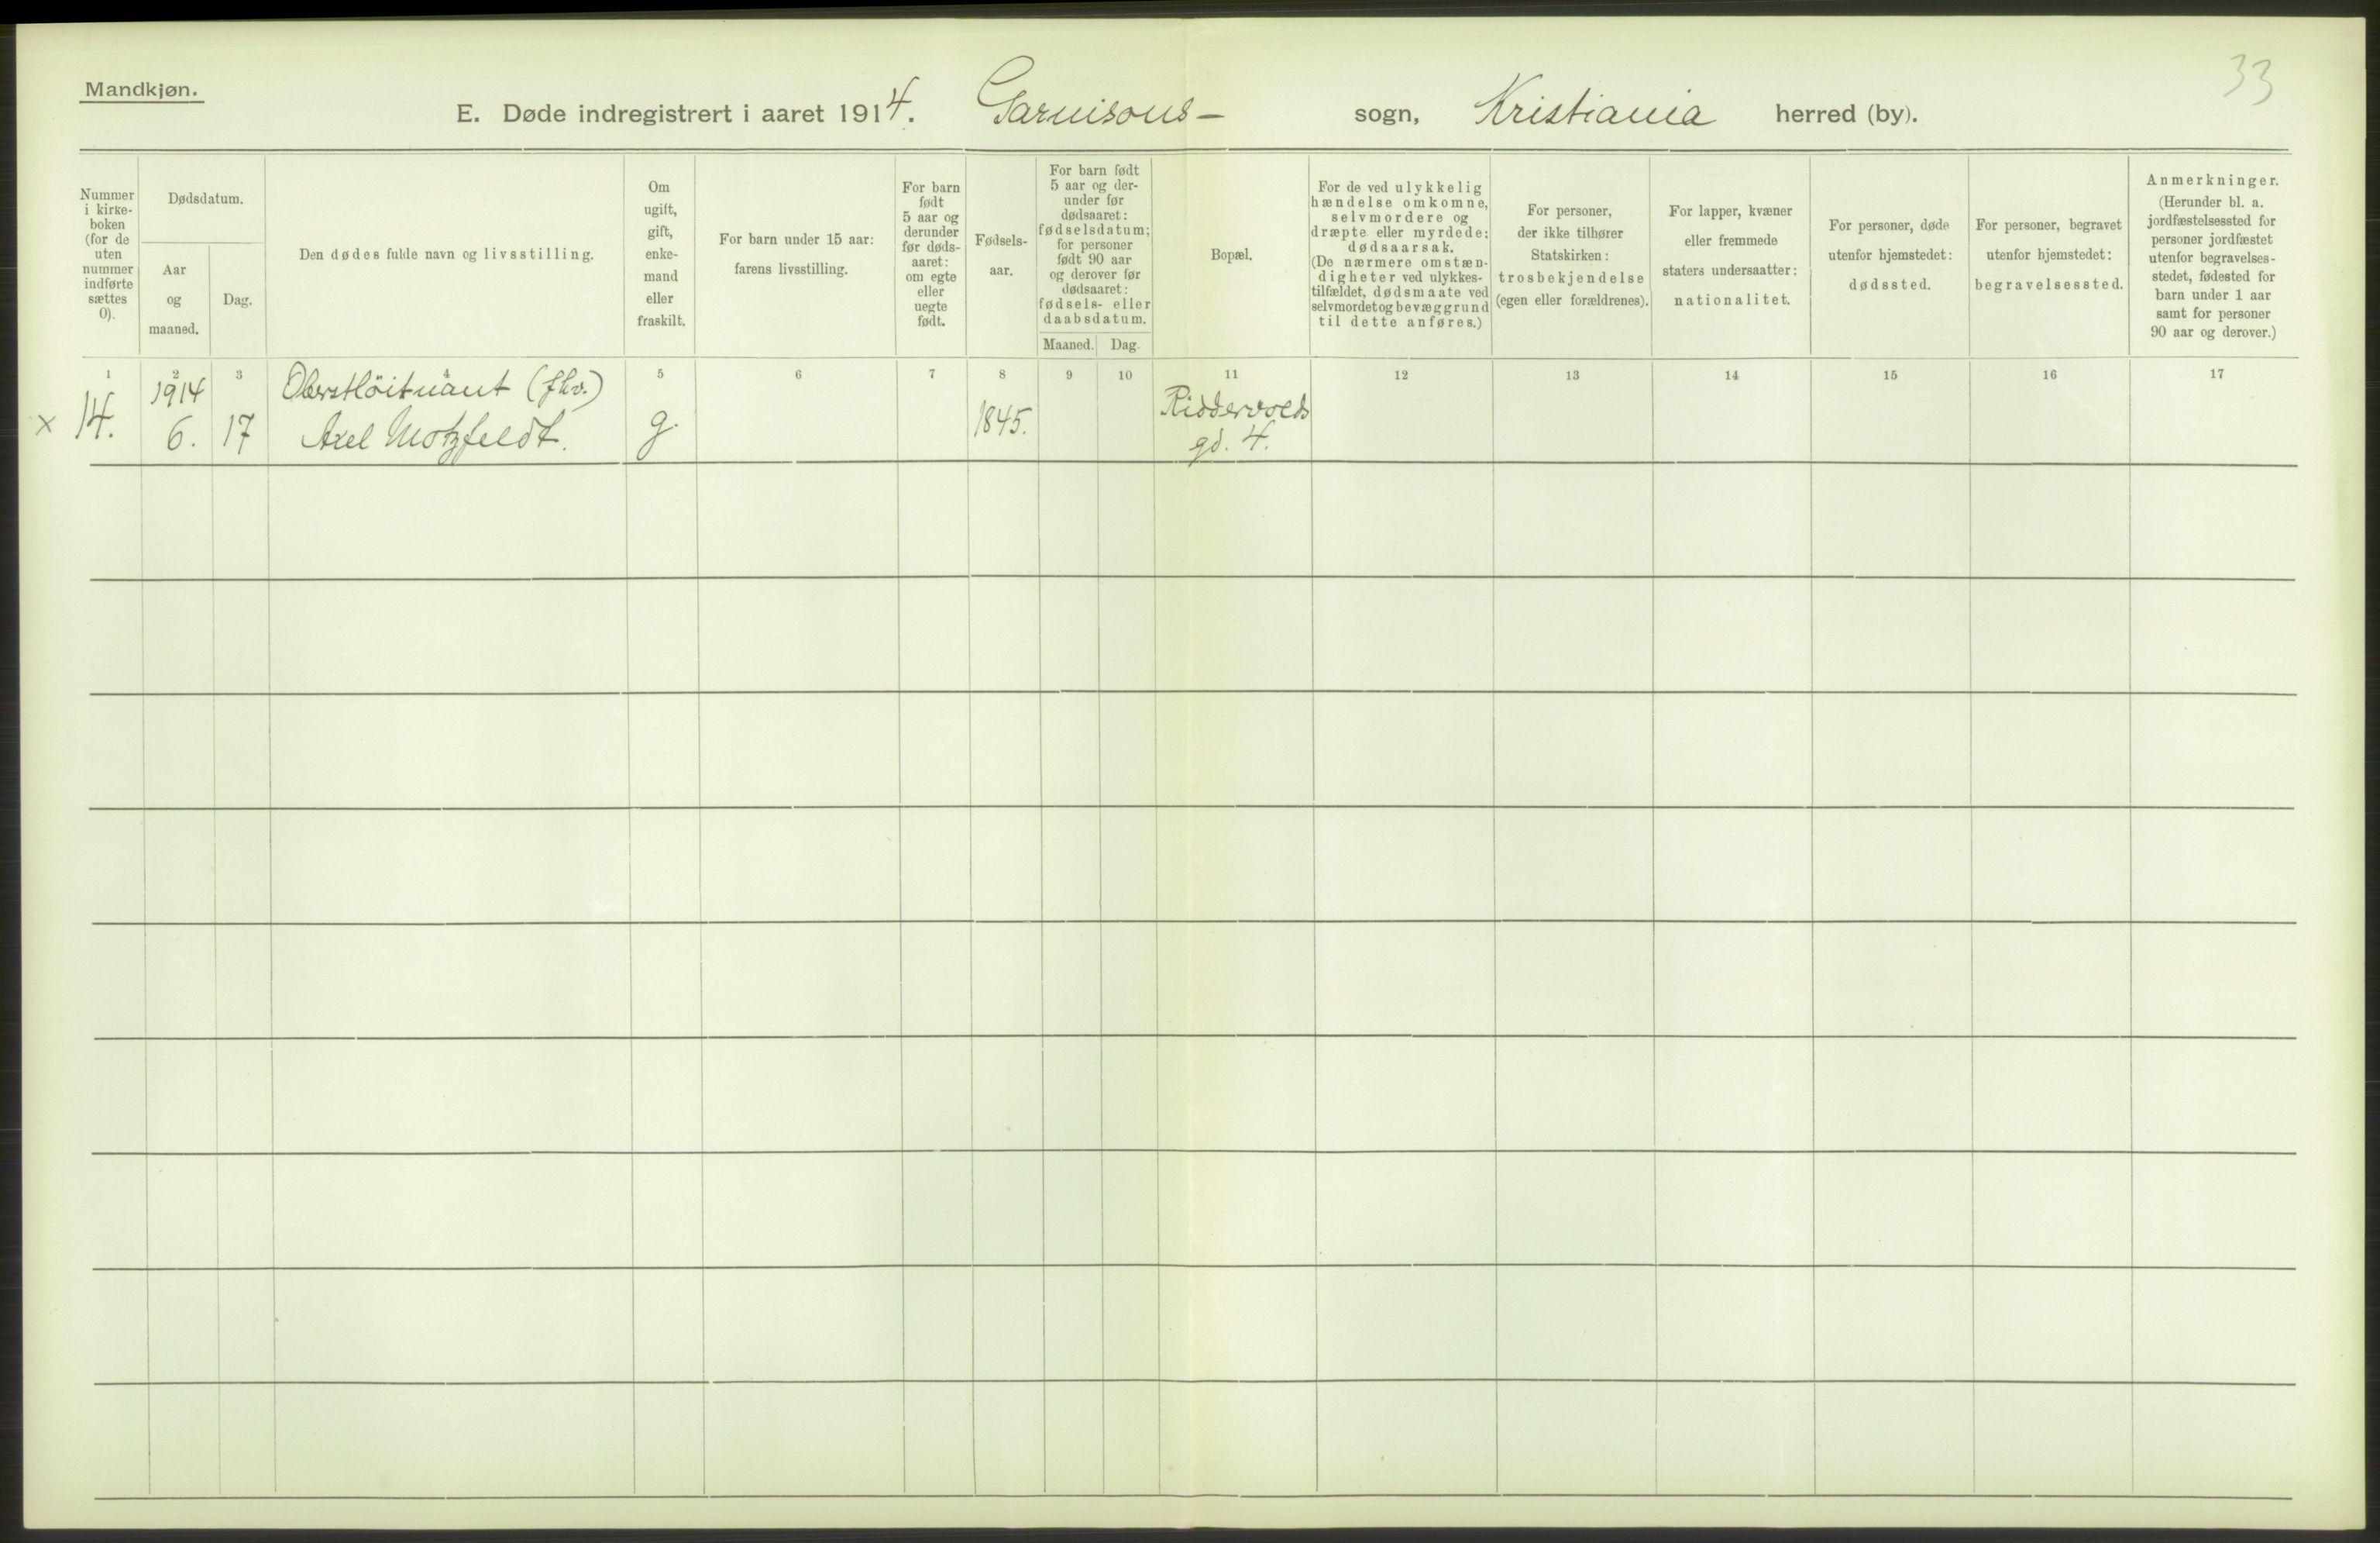 33
Mandkjøn.
E. Døde indregistrert i aaret 1914. Garnisons- sogn, Kristiania herred (by).
Nummer
i kirke-
boken
(for de
uten
nummer
indførte
sættes
0).
Dødsdatum.
Aar
og
maaned.
Dag.
Den dødes fulde navn og livsstilling.
Om
ugift,
gift,
enke-
mand
eller
fraskilt.
For barn under 15 aar:
farens livsstilling.
For barn
født
5 aar og
derunder
før døds-
aaret:
om egte
eller
uegte
født.
Fødsels-
aar.
For barn født
5 aar og der-
under før
dødsaaret:
fødselsdatum;
for personer
født 90 aar
og derover før
dødsaaret:
fødsels- eller
daabsdatum.
Maaned. Dag.
Bopæl.
For de ved ulykkelig
hændelse omkomne,
selvmordere og
dræpte eller myrdede:
dødsaarsak.
(De nærmere omstæn-
digheter ved ulykkes-
tilfældet, dødsmaate ved
selvmordet og bevæggrund
til dette anføres.)
For personer,
der ikke tilhører
Statskirken:
trosbekjendelse
(egen eller forældrenes).
For lapper, kvæner
eller fremmede
staters undersaatter:
nationalitet.
For personer, døde
utenfor hjemstedet:
dødssted.
For personer, begravet
utenfor hjemstedet:
begravelsessted.
Anmerkninger.
(Herunder bl. a.
jordfæstelsessted for
personer jordfæstet
utenfor begravelses-
stedet, fødested for
barn under 1 aar
samt for personer
90 aar og derover.)
1 2 3 4 5 6 7 8 9 10 11 12 13 14 15 16 17
1914 Oberstløitnant (fhv.) Riddervolds
x 14. 6. 17 Axel Motzfeldt. g. 1845. gd. 4.